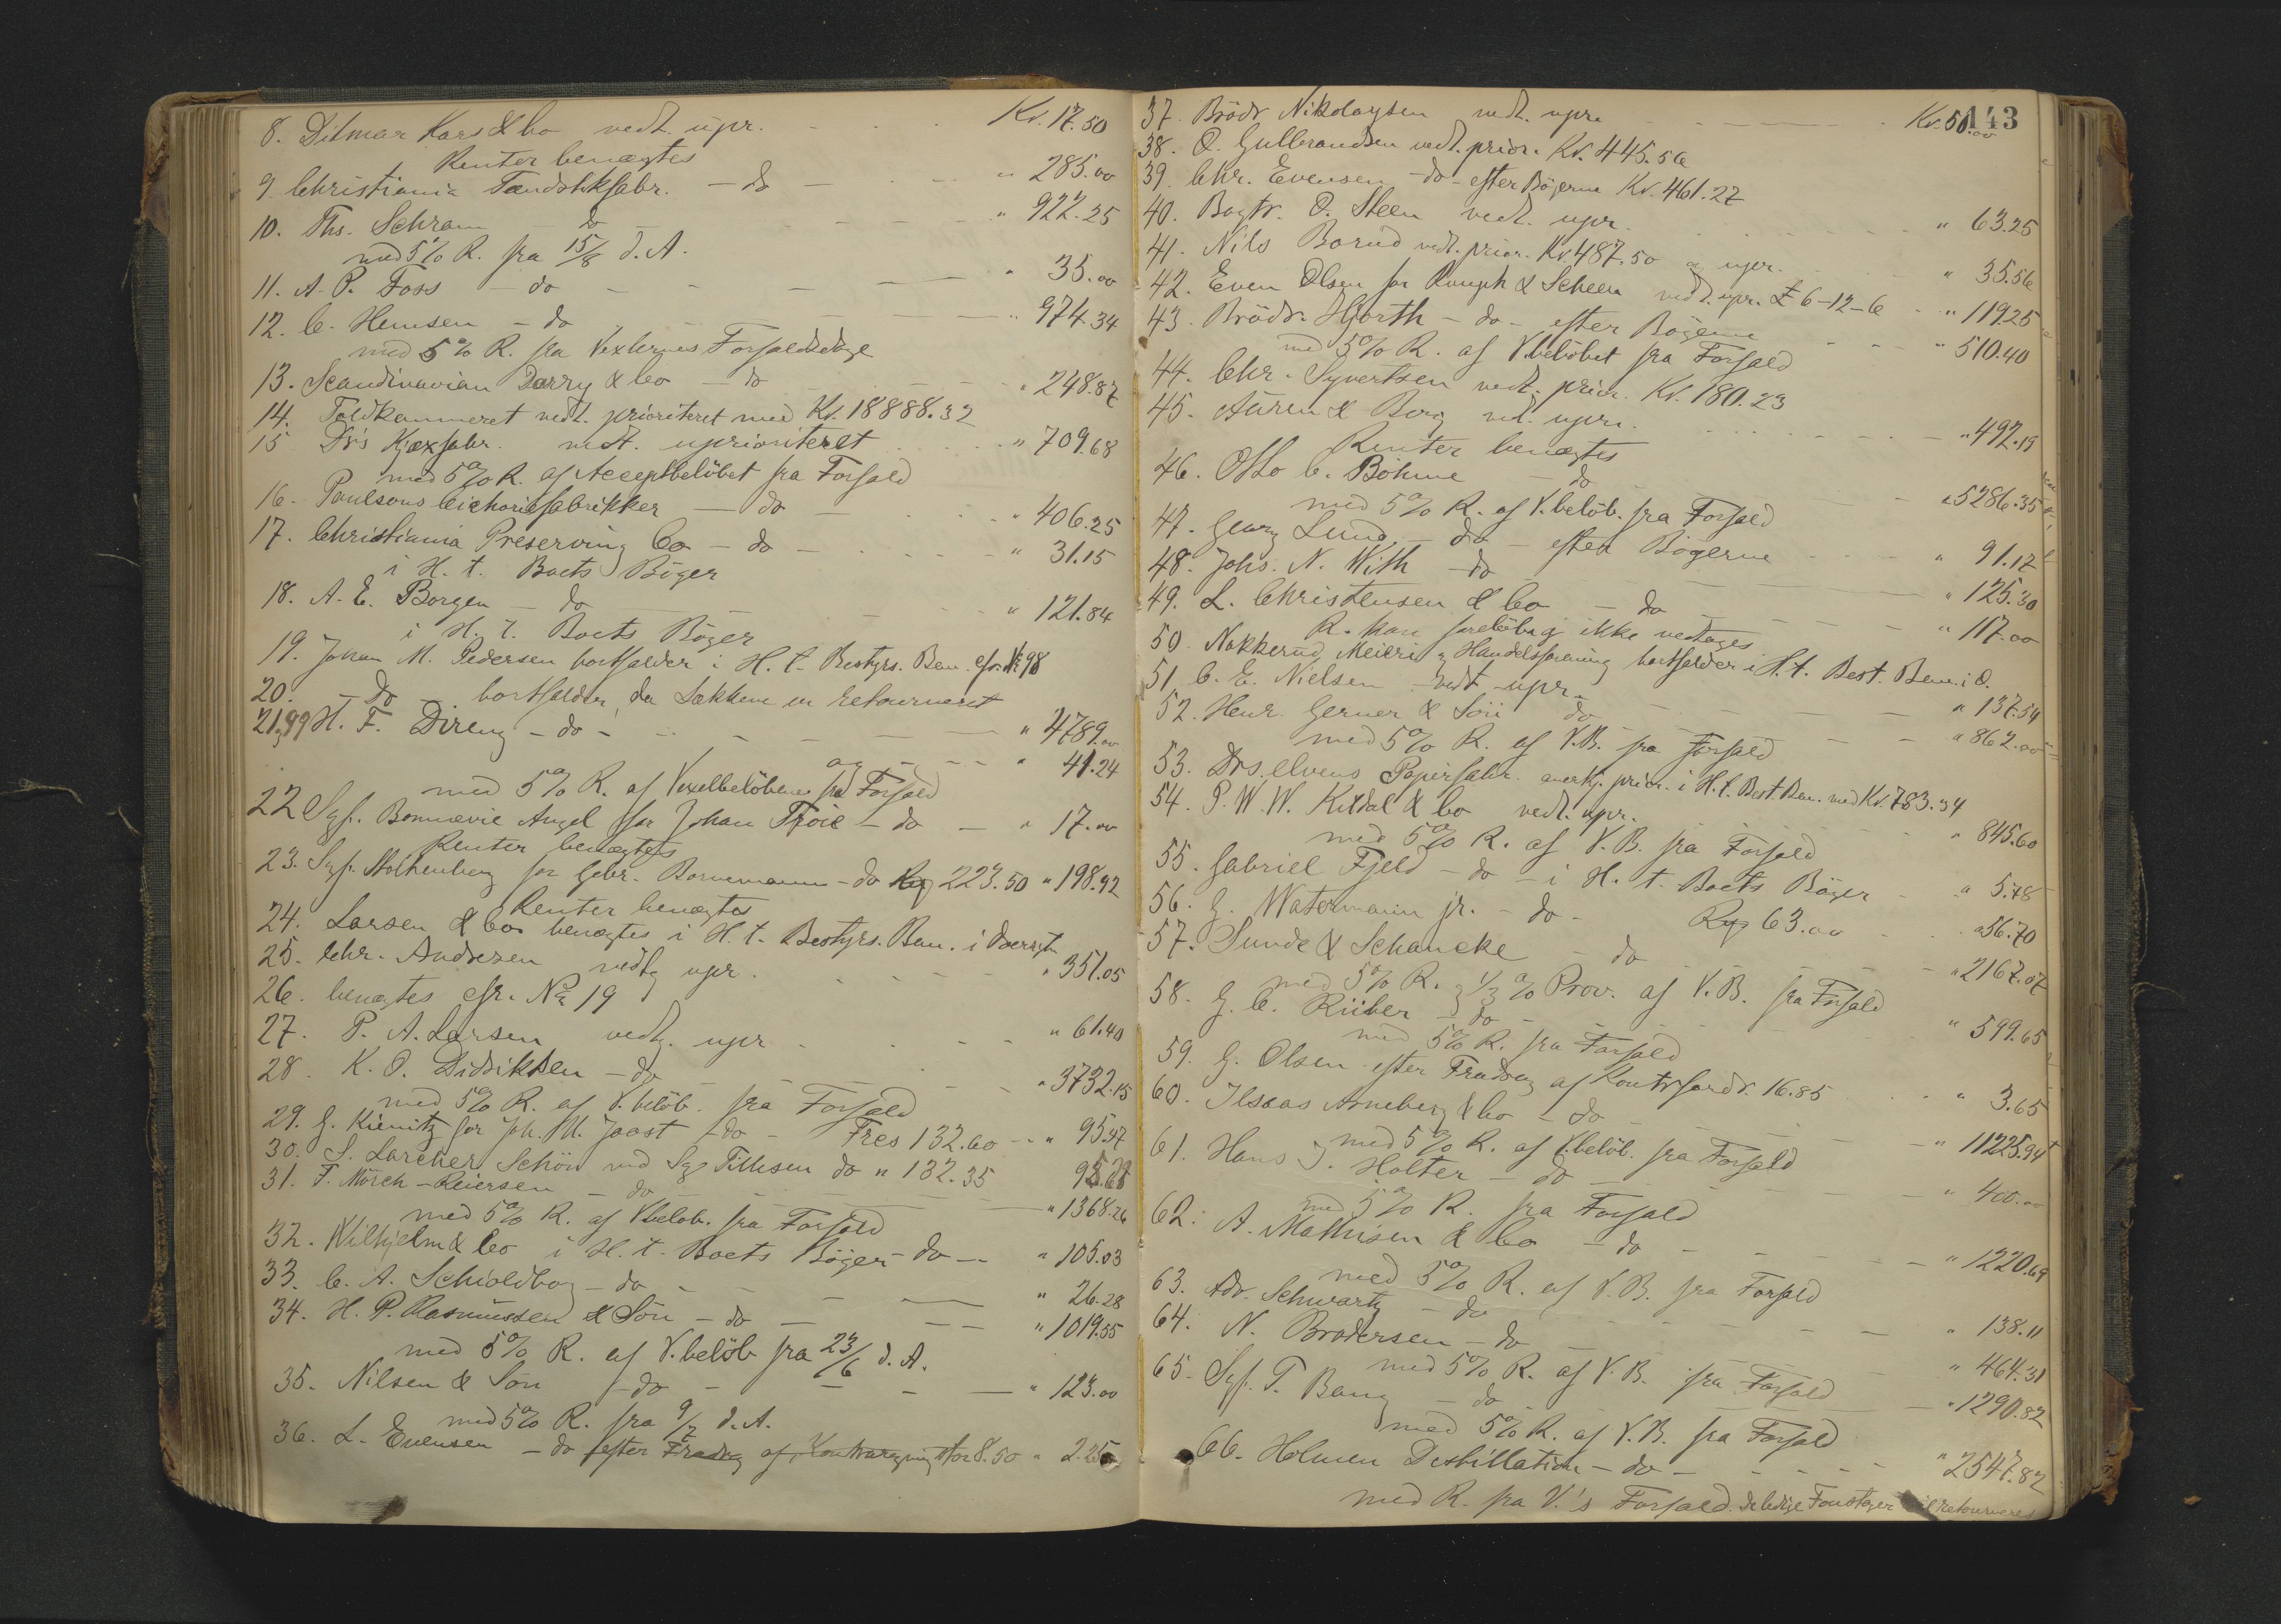 8. Ditmar Kars & Co vedt. upr. Kr. 17.50
Renter benægtes
9. Christiania Tændstikfabr. - do - " 285.00
10. Ths. Schram - do - " 922.25
med 5% R. fra 15/8 d. A.
11. A. P. Foss - do - " 35.00
12. C. Hemsen - do " 974.34
med 5% R. fra Vexlernes Forfaldsdage
13. Scandinavian Darry & Co - do " 248.87
14. Toldkammeret vedt. prioriteret med Kr. 18888.32
15 Dr's Kjexfabr. vedt. uprioriteret " 709.68
med 5% R. af Acceptbelöbet fra Forfald
16. Paulsons Cichoriefabrikker - do - " 406.25
17. Christiania Preserving Co - do - " 31.15
i H. t. Boets Böger
18. A. E. Borgen - do " 121.84
i H. t. Boets Böger
19. Johan M. Pedersen bortfalder i H. t. Bestyrs. Bem. cfr. No 98
20. - do - bortfalder, da Sækkene er retourneret
21, 99 H. F. Direng - do - " 4789.00
og " 41.24
med 5% R. af Vexelbelöbene fra Forfald
22 Sgf. Bonnevie Angel for Johan Troie - do - " 17.00
Renter benægtes
23. Sgf. Stoltenberg for Gebr. Bornemann - do 223.50 " 198.92
Renter benægtes
24. Larsen & Co benægtes i H. t. Bestyrs. Bem. i Oversigten
25. Chr. Andresen vedtg upr. " 351.05
26. benægtes cfr. No 19
27. P. A. Larsen vedtg. upr " 61.40
28. K. O. Didriksen - do " 3732.15
med 5% R. af V.belöb. fra Forfald
29. G. Kienitz for Joh. M. Joost - do - Fres 132.60 - " 95.47
30. S. Larcher Schön ved Sgf Tillisen do " 132.35 95.28
31. F. Mörch-Reiersen - do - " 1368.26
med 5% R. af V.belöb. fra Forfald
32. Wilhjelm & Co i H. t. Boets Böger - do - " 105.03
33. C. A. Schioldborg - do - " 26.28
34. H. P. Rasmussen & Sön - do - " 1019.55
med 5% R. af V.belöb fra 23/6 d. A.
35. Nilsen & Sön - do - " 123.00
med 5% R. fra 9/7 d. A.
36. L. Evensen - do efter Fradrag af Kontraregning stor 8.50 " 2.25
143
37. Brödr Nikolaysen vedt. upr. Kr. 50.00
38. O. Gulbrandsen vedt. prior. Kr. 445.56
39. Chr. Evensen - do - efter Bögerne Kr. 461.27
40. Bagtr. O. Steen vedt. upr. " 63.25
41. Nils Borud vedt. prior. Kr. 487.50 og upr. " 35.56
42. Even Olsen for Rumph & Scheen vedt. upr. £ 6-12-6 " 119.25
43. Brödr. Hjorth - do - efter Bögerne " 510.40
med 5% R. af V.belöbet fra Forfald
44. Chr. Syvertsen vedt. prior. Kr. 180.23
45. Auren & Borg vedt. upr. " 492.19
Renter benægtes
46. Otto C. Böhme - do " 5286.35
med 5% R. af V.belöb. fra Forfald
47. Georg Lund - do - efter Bögerne " 91.12
48. Johs. N. With - do " 125.30
49. L. Christensen & Co - do " 117.00
R. kan foreløbig ikke vedtages
50. Nakkerud Meieri & Handelsforening bortfalder i H. t. Best. Bem. i O.
51 C. E. Nielsen vedt upr. " 137.54
52. Henr. Gerner & Sön do " 862.00
med 5% R. af V.B. fra Forfald
53. Drs.elvens Papirfabr. anerkj. prior. i H. t. Best. Bem. med Kr. 783.34
54. P. W. W. Kildal & Co vedt. upr. " 845.60
med 5% R. af V. B. fra Forfald
55. Gabriel Fjeld - do - i H. t. Boets Böger " 5.48
56. G. Watermann jr. - do - 63.00 " 56.70
57. Sunde & Schancke - do " 2167.07
med 5% R. og 1/3% Prov. af V. B. fra Forfald
58. G. C. Rüber - do - " 599.65
med 5% R. fra Forfald
59. G. Olsen efter Fradrag af Kontrfordr. 16.85 " 3.65
60. Ilsaas Arneberg & Co - do " 11225.94
med 5% R. af V.belöb. fra Forfald
61. Hans J. Holter - do - " 400.00
med 5% R. fra Forfald
62. A. Mathisen & Co - do " 1220.69
med 5% R. af V. B. fra Forfald
63. Adv. Schwartz - do " 138.11
64. N. Brodersen - do " 464.31
med 5% R. af V. B. fra Forfald
65. Sgf. T. Bang - do " 1290.82
med 5% R. af V. B. fra Forfald
66. Holmen Destillation - do - " 2547.82
med R. fra V.'s Forfald. De ledige Foustager retourneres